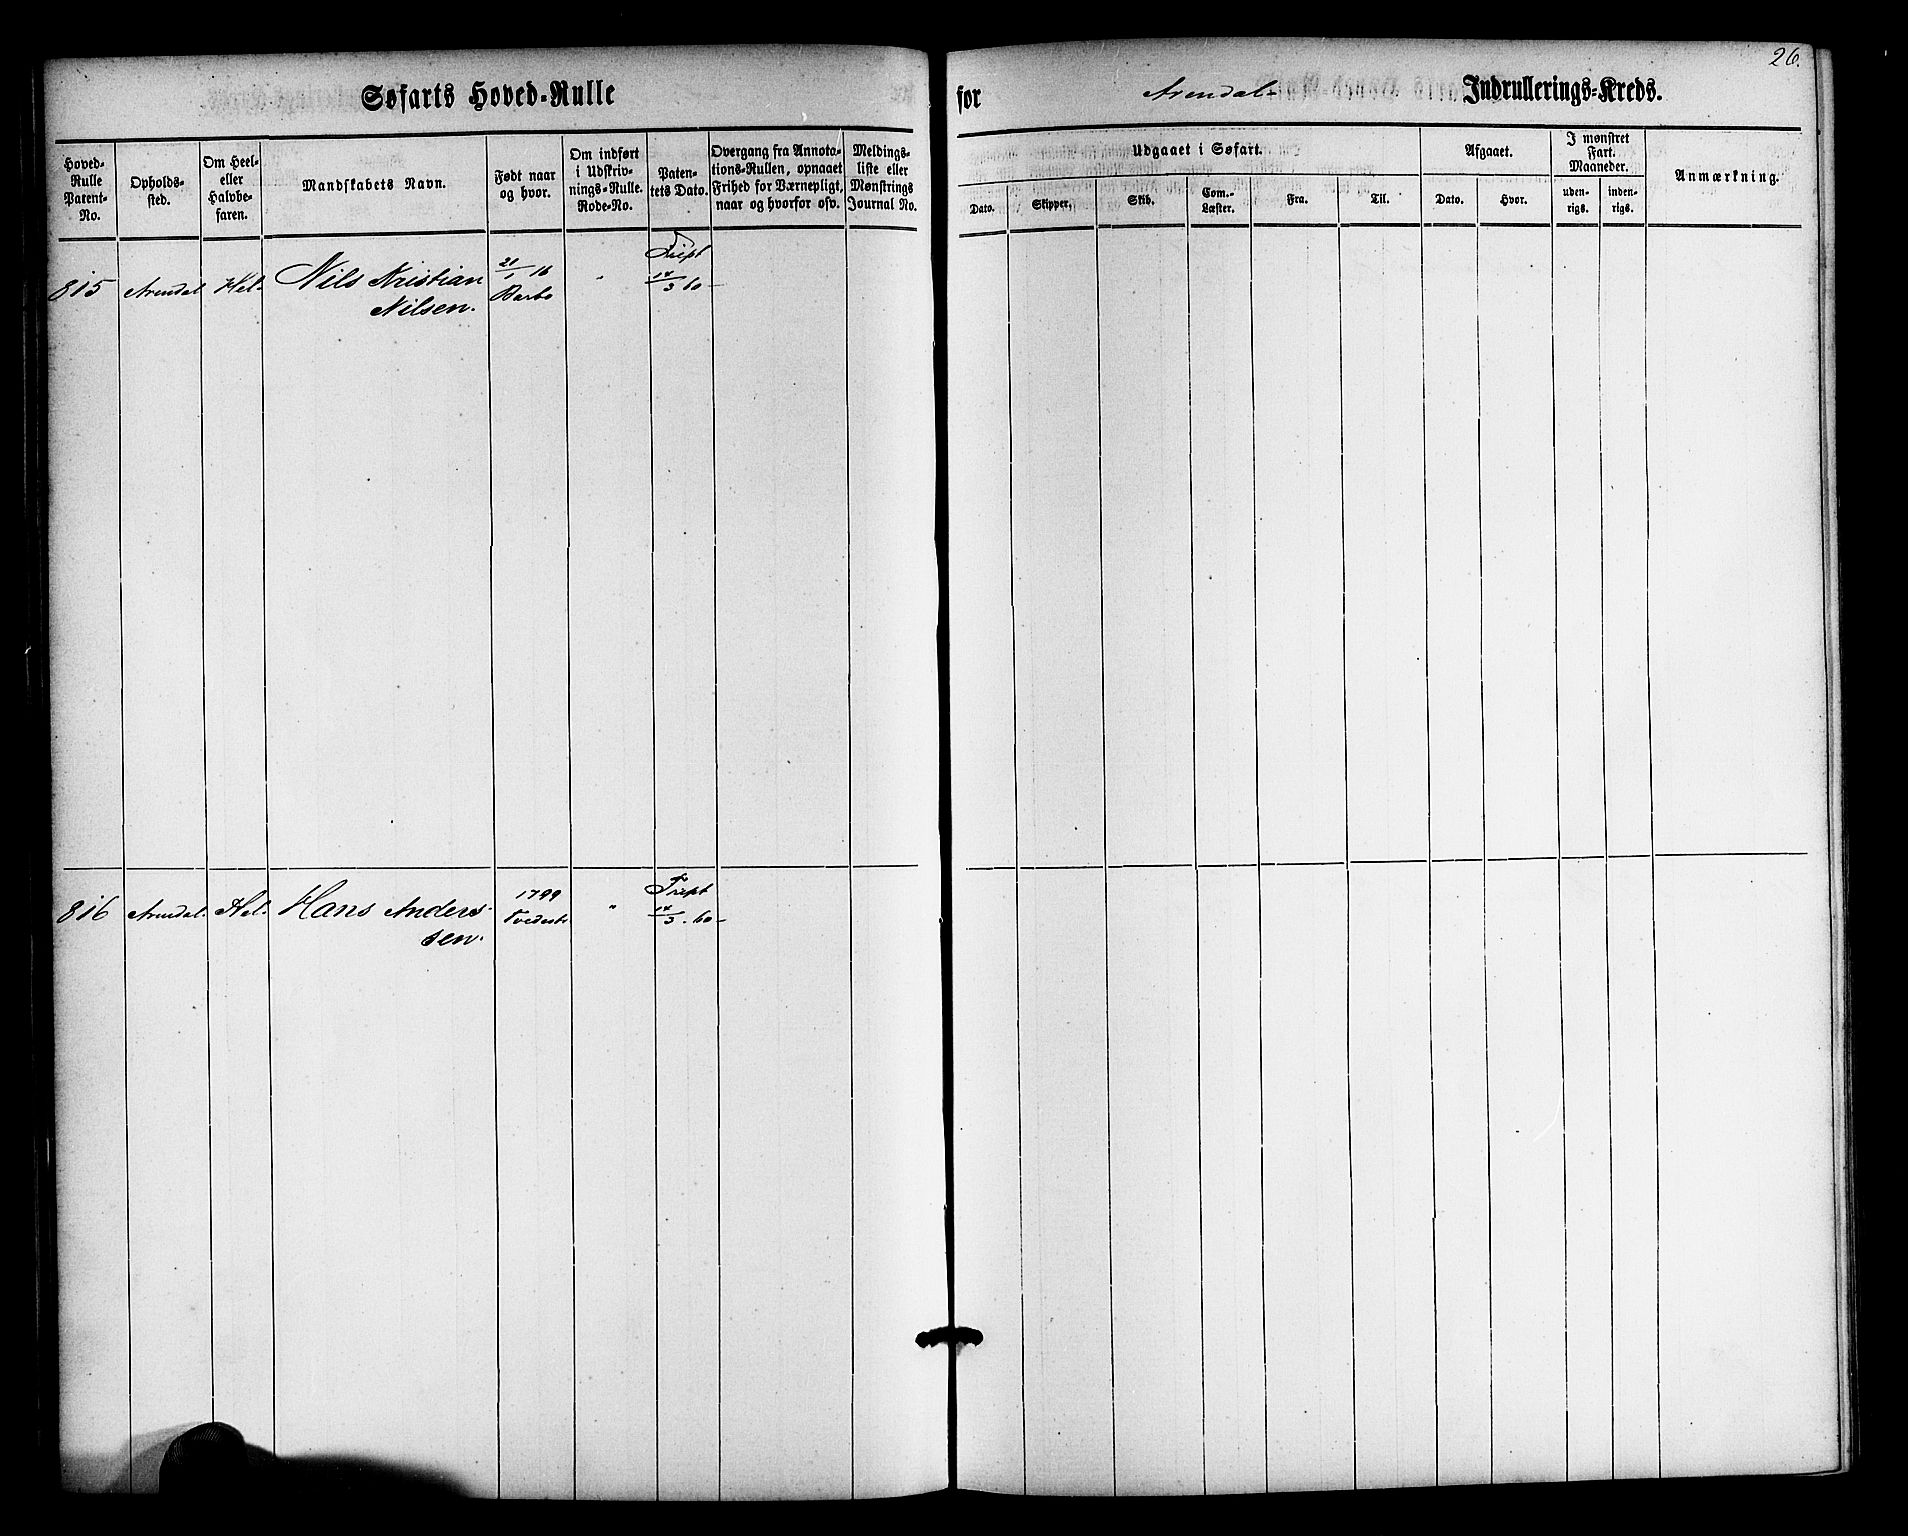 26.
Søfarts Hoved-Rulle for Arendal- Indrullerings-Kreds.
Hoved-
Rulle
Patent-
No.
Opholds-
sted.
Om Heel-
eller
Halvbe-
faren.
Mandskabets Navn.
Født naar
og hvor.
Om indført
i Udskriv-
nings-Rulle.
Rode-No.
Paten-
tets Dato.
Overgang fra Annota-
tions-Rullen, opnaaet
Frihed for Værnepligt,
naar og hvorfor osv.
Meldings-
liste eller
Mønstrings
Journal No.
Udgaaet i Søfart.
Dato.
Skipper.
Skib.
Com.-
Læster.
Fra.
Til.
Afgaaet.
Dato.
Hvor.
I mønstret
Fart.
Maaneder.
uden-
rigs.
inden-
rigs.
Anmærkning.
815 Arendal Hel- Nils Kristian
Nilsen.
21/1 16
Barbo
"
Fript
14/3 60-
816 Arendal. Hel- Hans Anders-
sen.
1799
Tvedestr
"
Fript
14/3. 60-